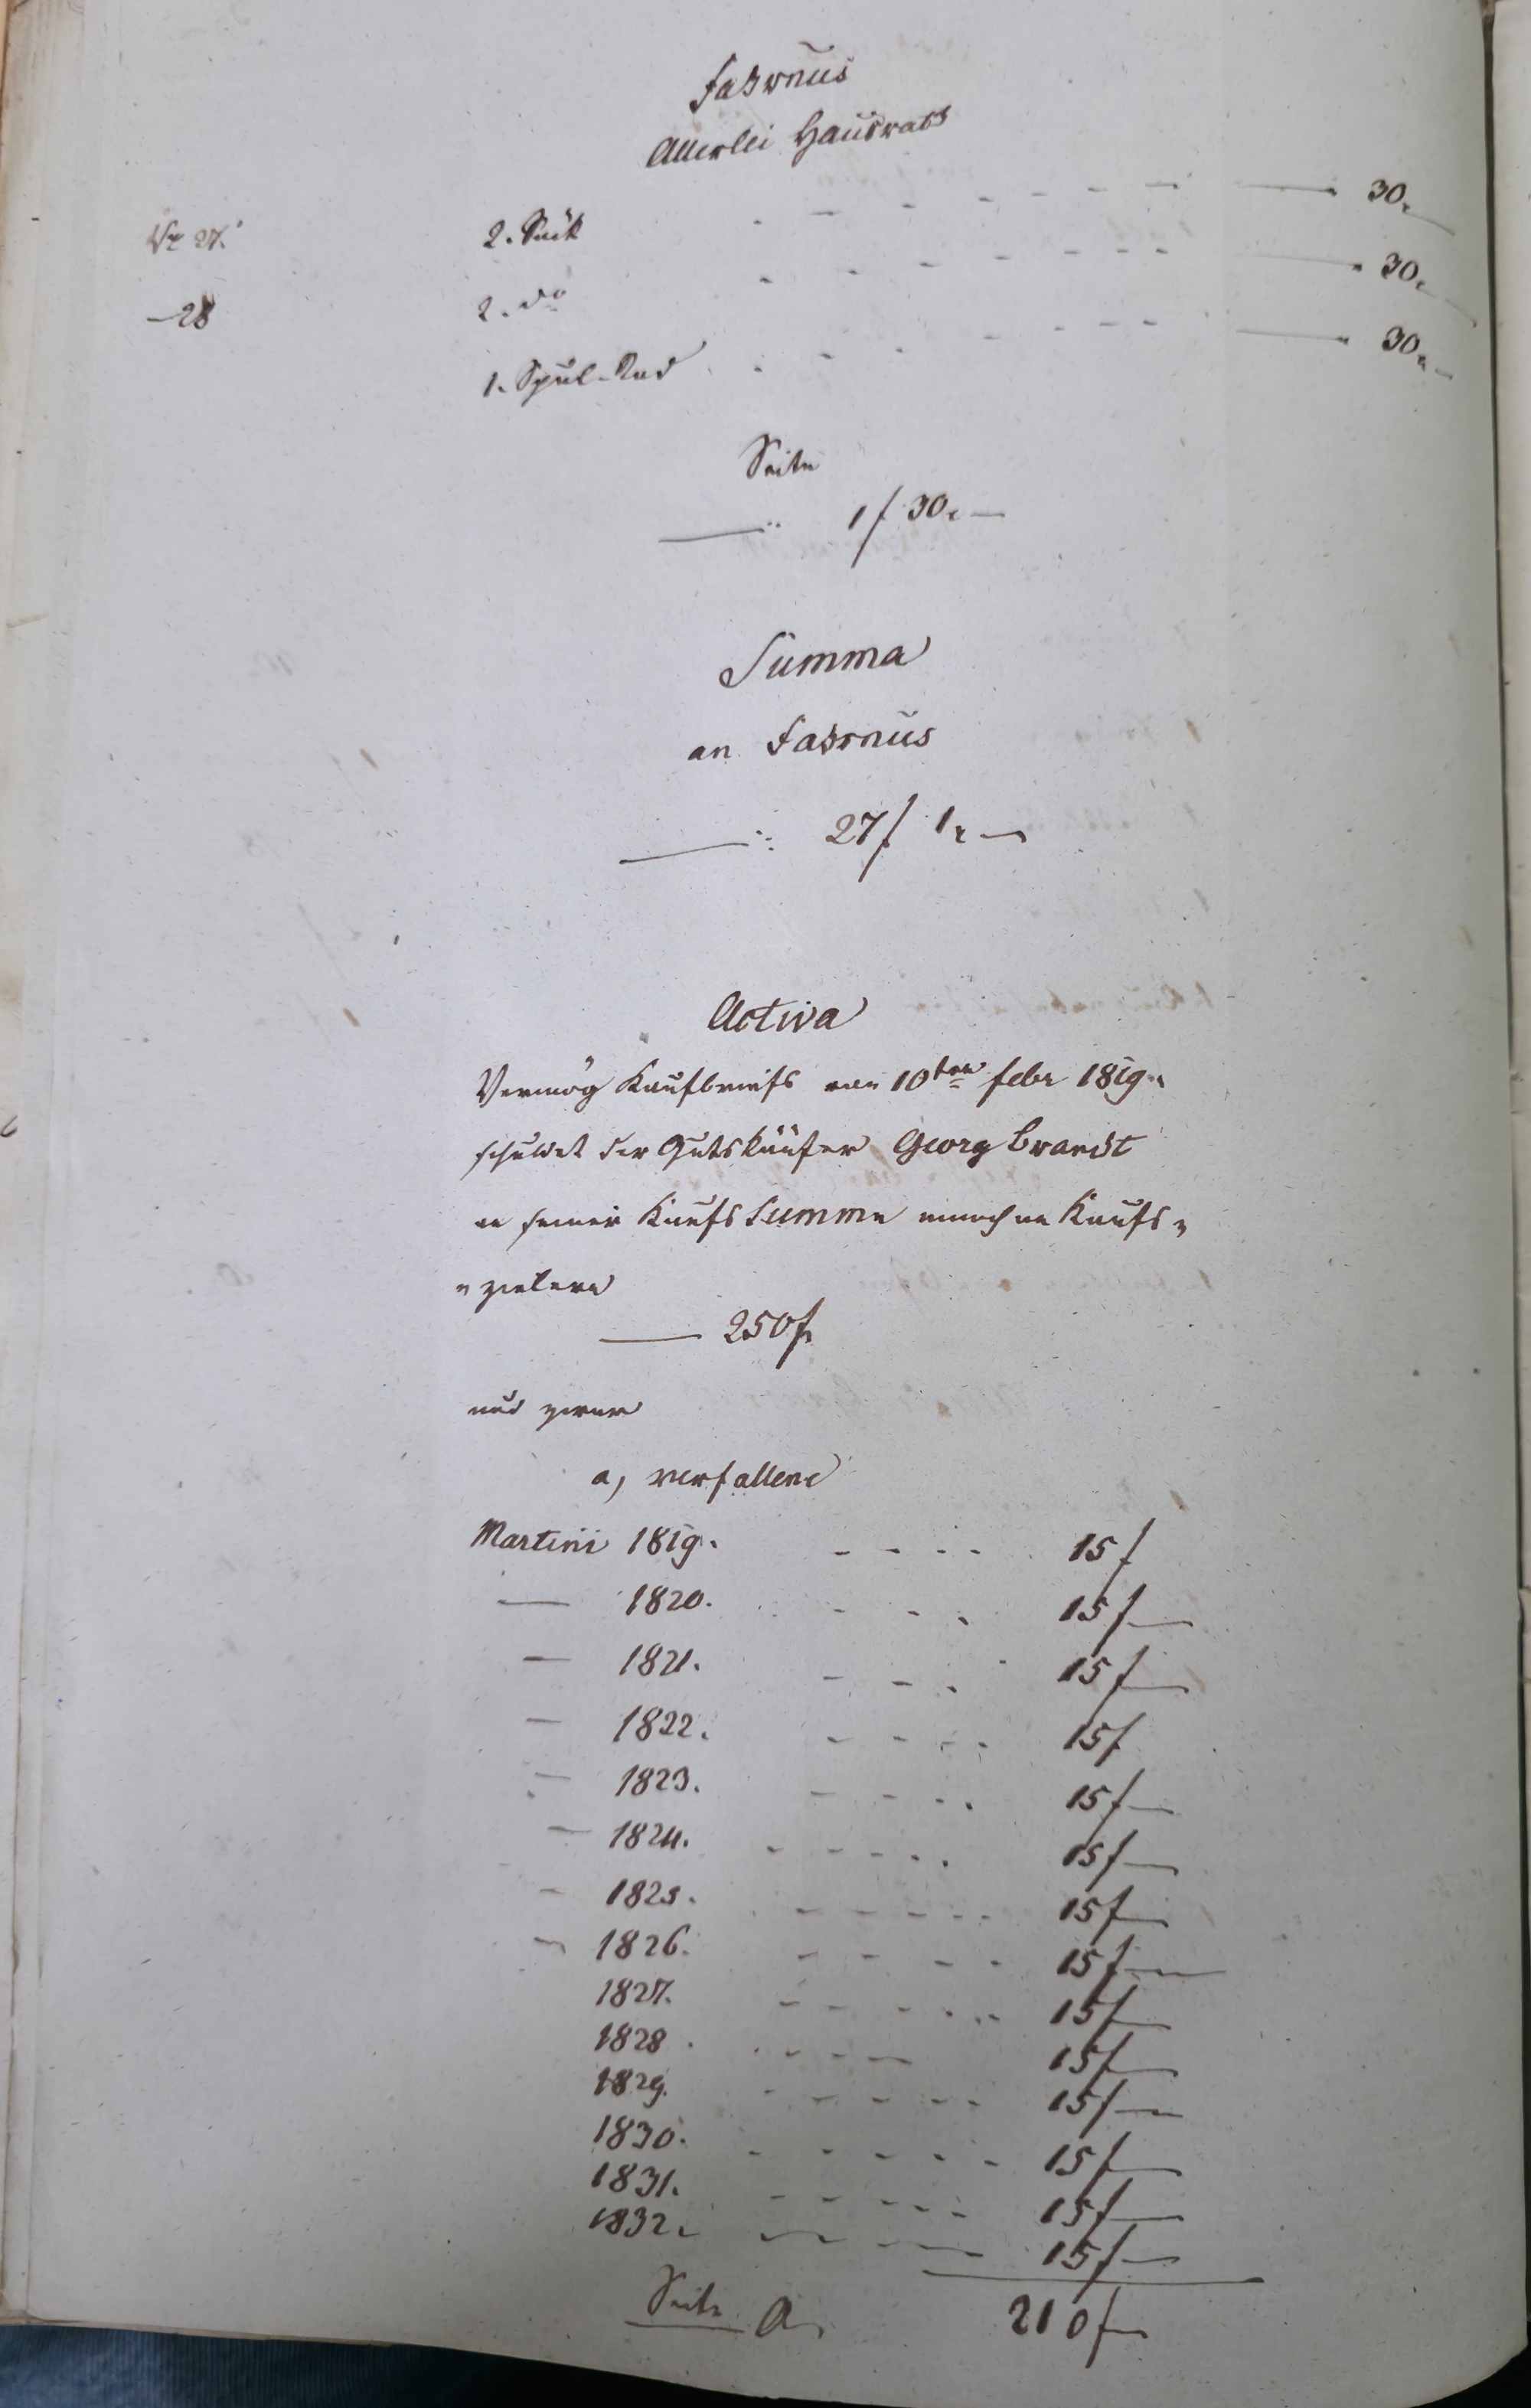 Fahrnus
Allerlei Hausrath
Nr 27. 2. Säck - - - - - 30.
—28 2. do - - - - - 30.
1. Spul-Rad - - - - - 30.
Seite
—— 1 f 30 x —
Summa
an Fahrnus
—— 27 f 1 x —
Activa
Vermög Kaufbriefs vom 10ten Febr 1819.
schuldet der Gutskäufer Georg Brandt
an seiner Kaufs Summe annoch an Kaufs-
zielern
—— 250 f
und zwar
a, verfallene
Martini 1819. - - - - 15 f
— 1820. - - - 15 f —
— 1821. - - - 15 f —
— 1822. - - - - 15 f
— 1823. - - - - 15 f —
— 1824. - - - - - 15 f —
— 1825. - - - - - 15 f —
— 1826. - - - - 15 f —
1827. - - - - - 15 f —
1828. - - - - 15 f —
1829. - - - - - 15 f —
1830. - - - - - 15 f —
1831. - - - - - 15 f —
1832. - - - - 15 f —
Seite a. 210 f —